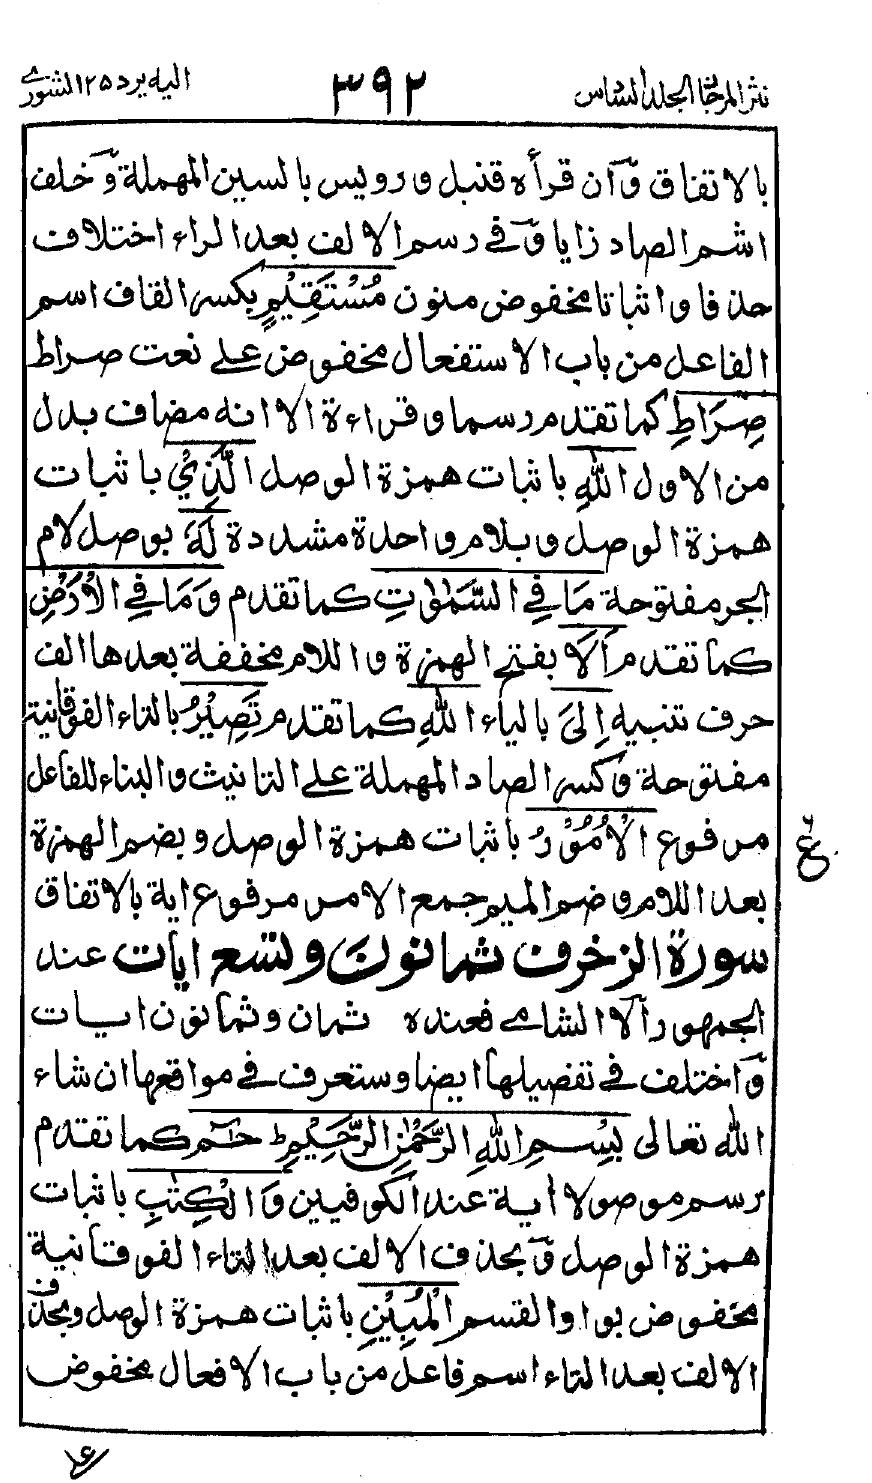 نثر المرجان الجلد السادس ٣٩٢ اليه يرد ٢٥ الشورى
بالاتفاق وٓان قرأه قنبل ورويس بالسين المهملة وٓخلف
اشم الصاد زايا وٓفي رسم الالف بعد الراء اختلاف
حذفا واثباتا مخفوض منون مُسْتَقِيْمٍ بكسر القاف اسم
الفاعل من باب الاستفعال مخفوض على نعت صراط
صِرَاطِ كما تقدم رسما وقراءة الا انه مضاف بدل
من الاول اللهِ باثبات همزة الوصل الَّذِيْ باثبات
همزة الوصل وبلام واحدة مشددة لَهٗ بوصل لام
الجر مفتوحة مَا فِي السَّمٰوٰتِ كما تقدم وَمَا فِي الْاَرْضِ
كما تقدم اَلَا بفتح الهمزة واللام مخففة بعدها الف
حرف تنبيه اِلَى بالياء اللهِ كما تقدم تَصِيْرُ بالتاء الفوقانية
مفتوحة وٓكسر الصاد المهملة على التانيث والبناء للفاعل
مرفوع الْاُمُوْرُ باثبات همزة الوصل وبضم الهمزة
بعد اللام وضم الميم جمع الامر مرفوع اية بالاتفاق
سورة الزخرف ثمانون وتسع ايات عند
الجمهور آلا الشامي فعنده ثمان وثمانون ايات
وٓاختلف في تفصيلها ايضا وستعرف في مواقعها ان شاء
الله تعالى بِسْمِ اللهِ الرَّحْمٰنِ الرَّحِيْمِ ط حٰمٓ كما تقدم
رسم موصولا اية عند الكوفيين وَالْكِتٰبِ باثبات
همزة الوصل وٓبحذف الالف بعد التاء الفوقانية
مخفوض بواو القسم الْمُبِيْنِ باثبات همزة الوصل وبحذف
الالف بعد التاء اسم فاعل من باب الافعال مخفوض
ع